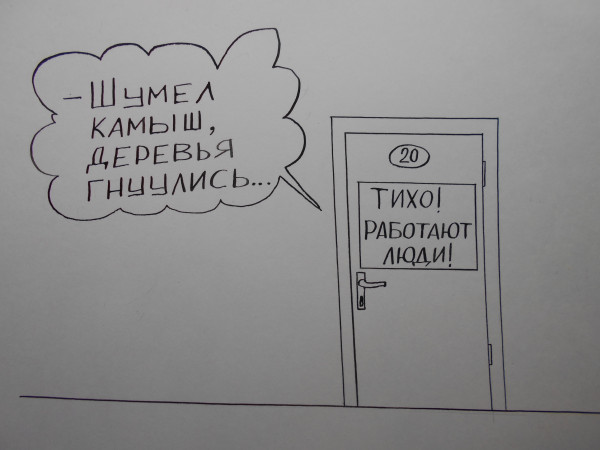 – Шумел
камыш,
деревья
гнуулись...
20
Тихо!
Работают
люди!